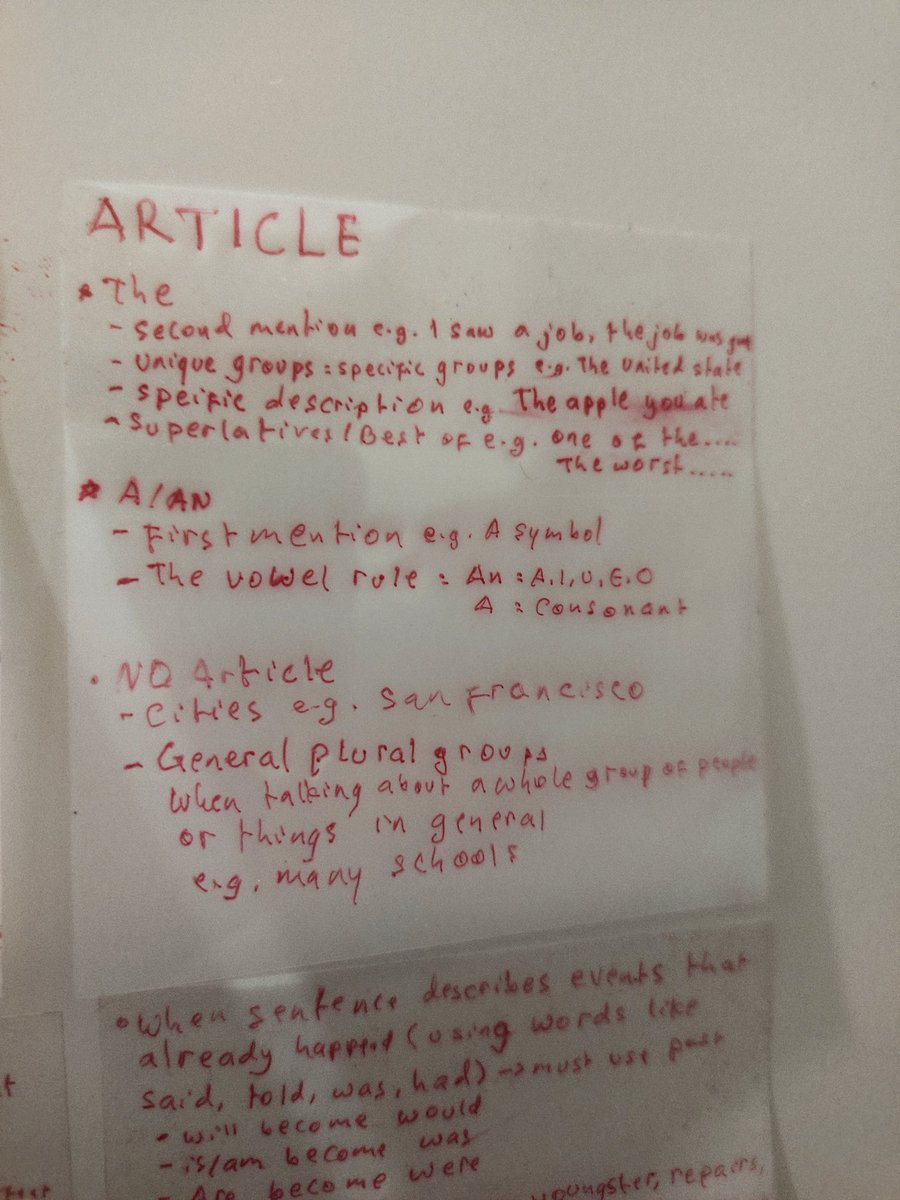 ARTICLE
* The
- second mention e.g. I saw a job, the job was
- unique groups : specific groups e.g. The United state
- speific description e.g. The apple you ate
- Superlatives / Best of e.g. one of the....
The worst.....
* A/AN
- First mention e.g. A symbol
- The vowel rule : An : A, I, U, E, O
A : consonant
• NO Article
- Cities e.g. San Francisco
- General plural groups
When talking about a whole group of people
or things in general
e.g. many schools
• When sentence describes events that
already happend (using words like
said, told, was, had) → must use past
- will become would
- is/am become was
- Are become were
youngster, repairs,